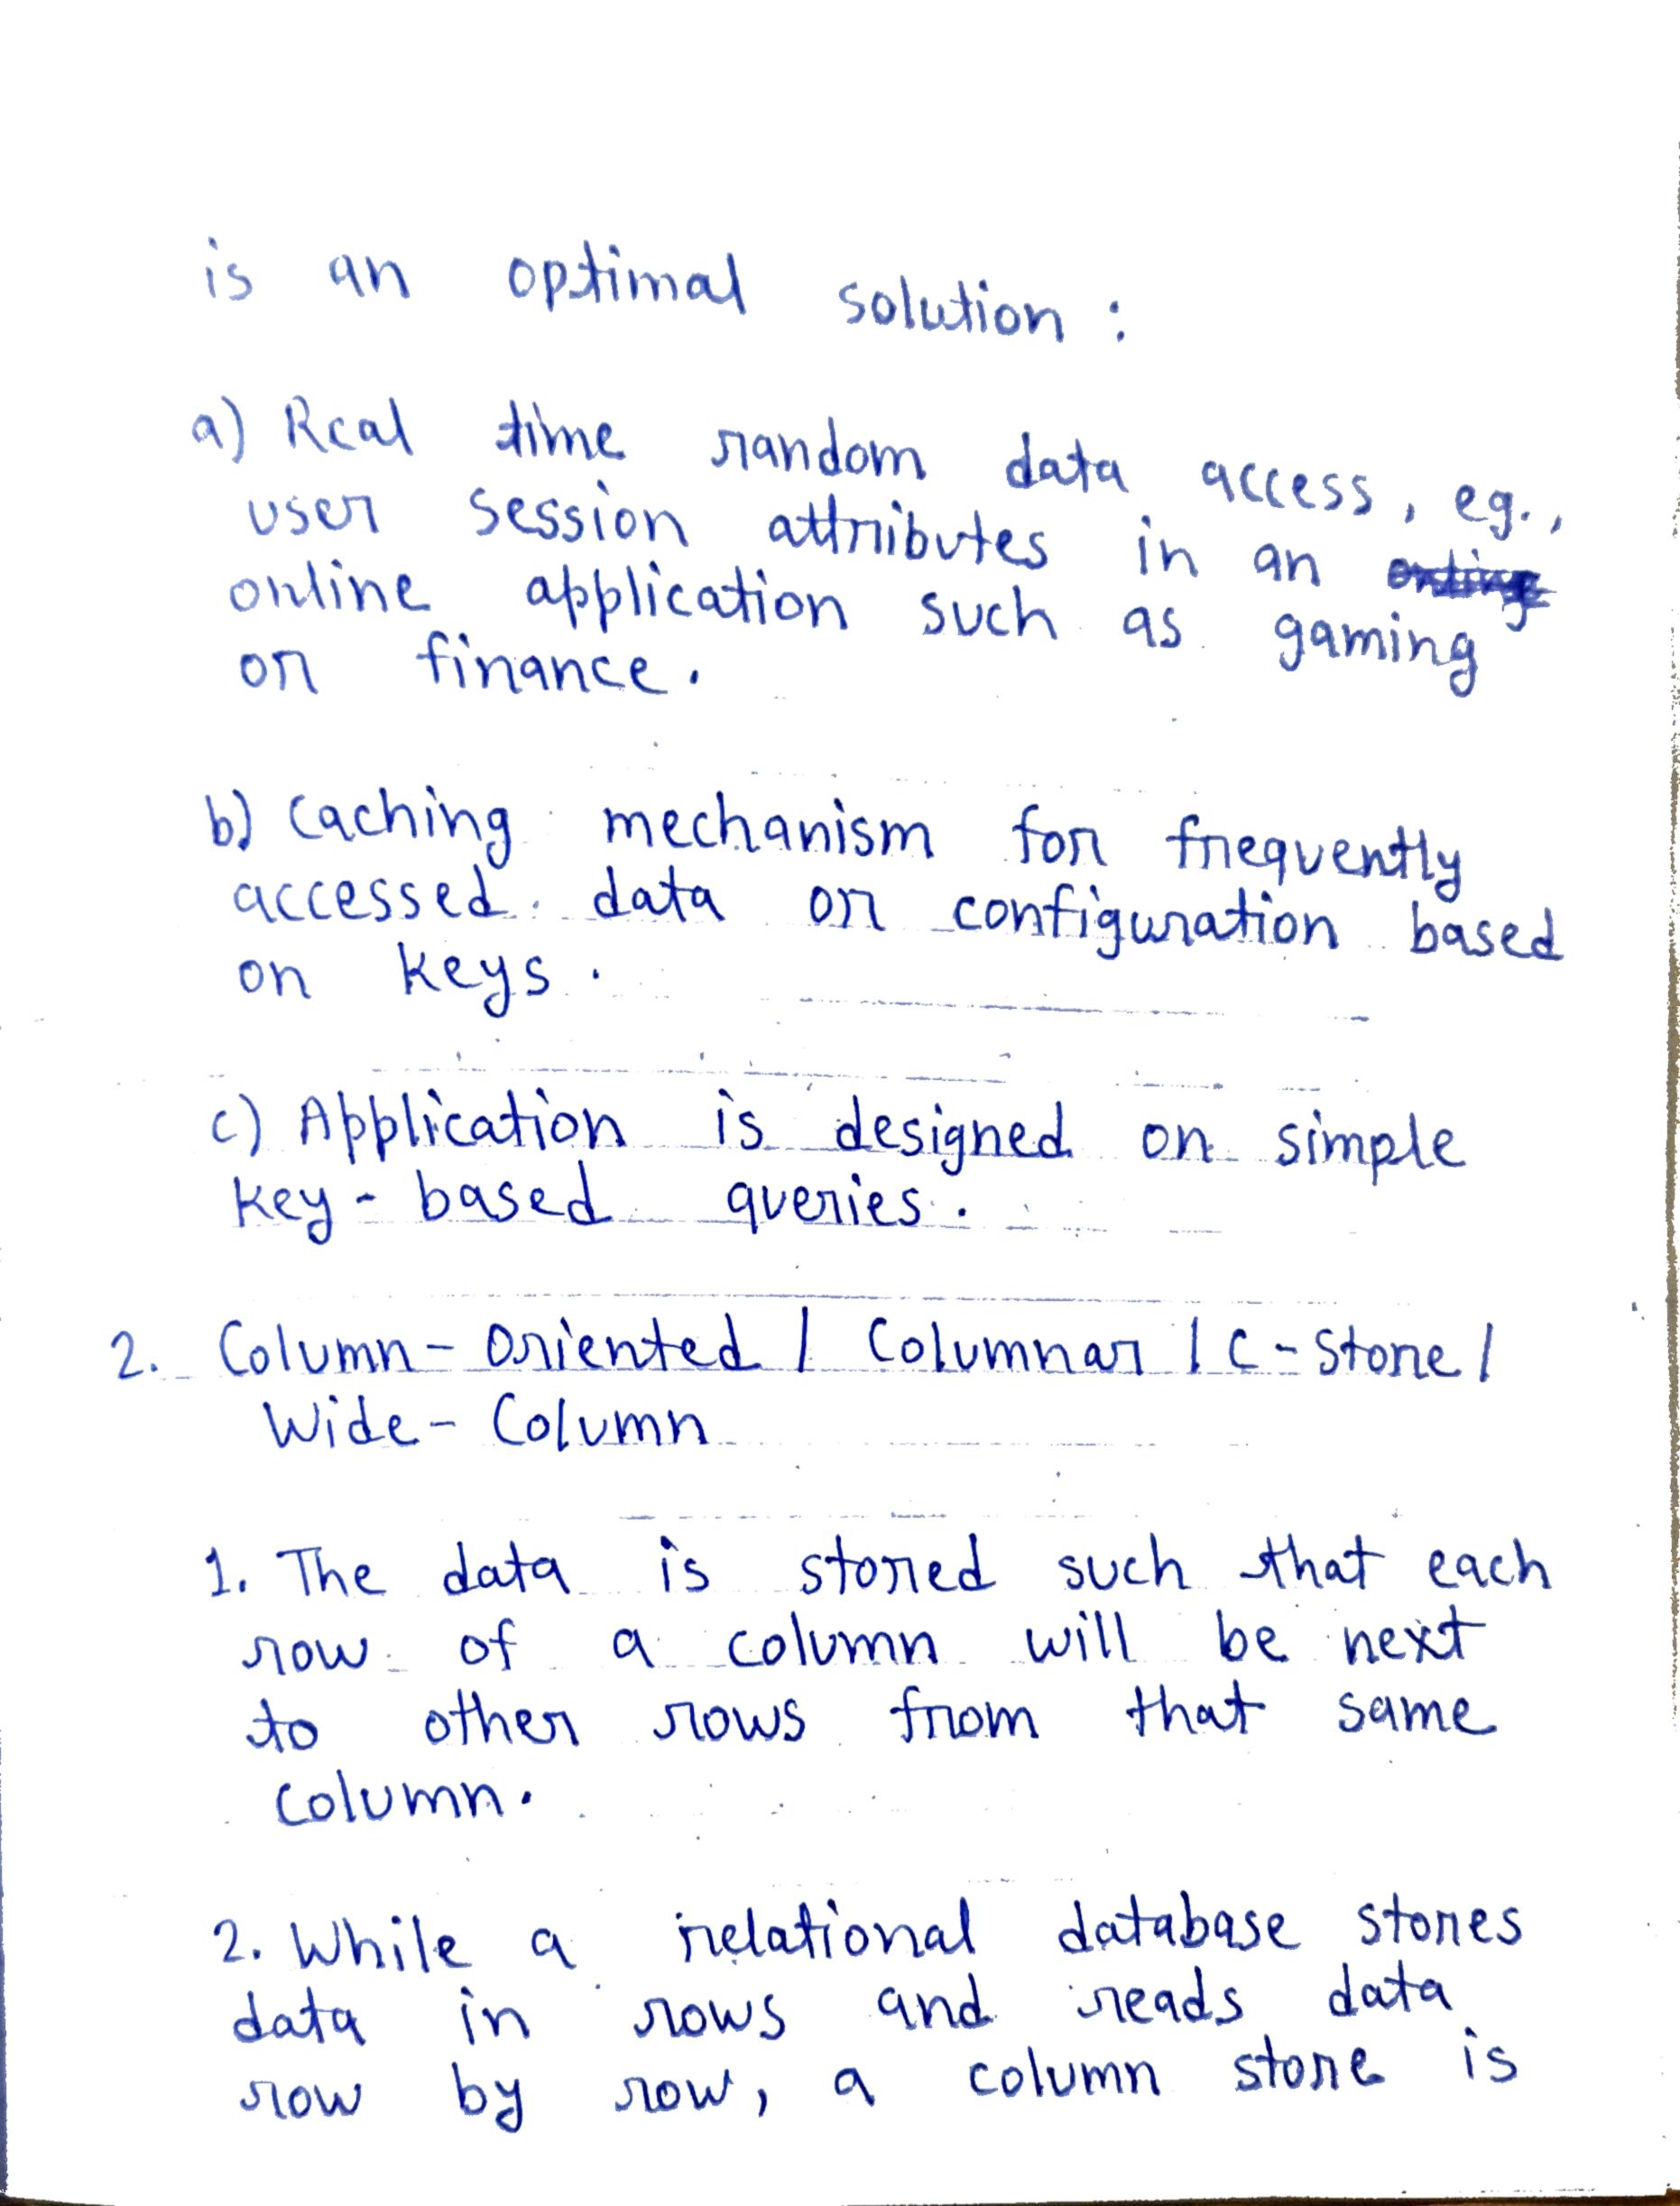 is an optimal solution :
a) Real time random data access, eg.,
user session attributes in an
online application such as gaming
or finance.
b) Caching mechanism for frequently
accessed data or configuration based
on keys.
c) Application is designed on simple
key-based queries.
2. Column-Oriented / Columnar / C-Store /
Wide-Column
1. The data is stored such that each
row of a column will be next
to other rows from that same
column.
2. While a relational database stores
data in rows and reads data
row by row, a column store is